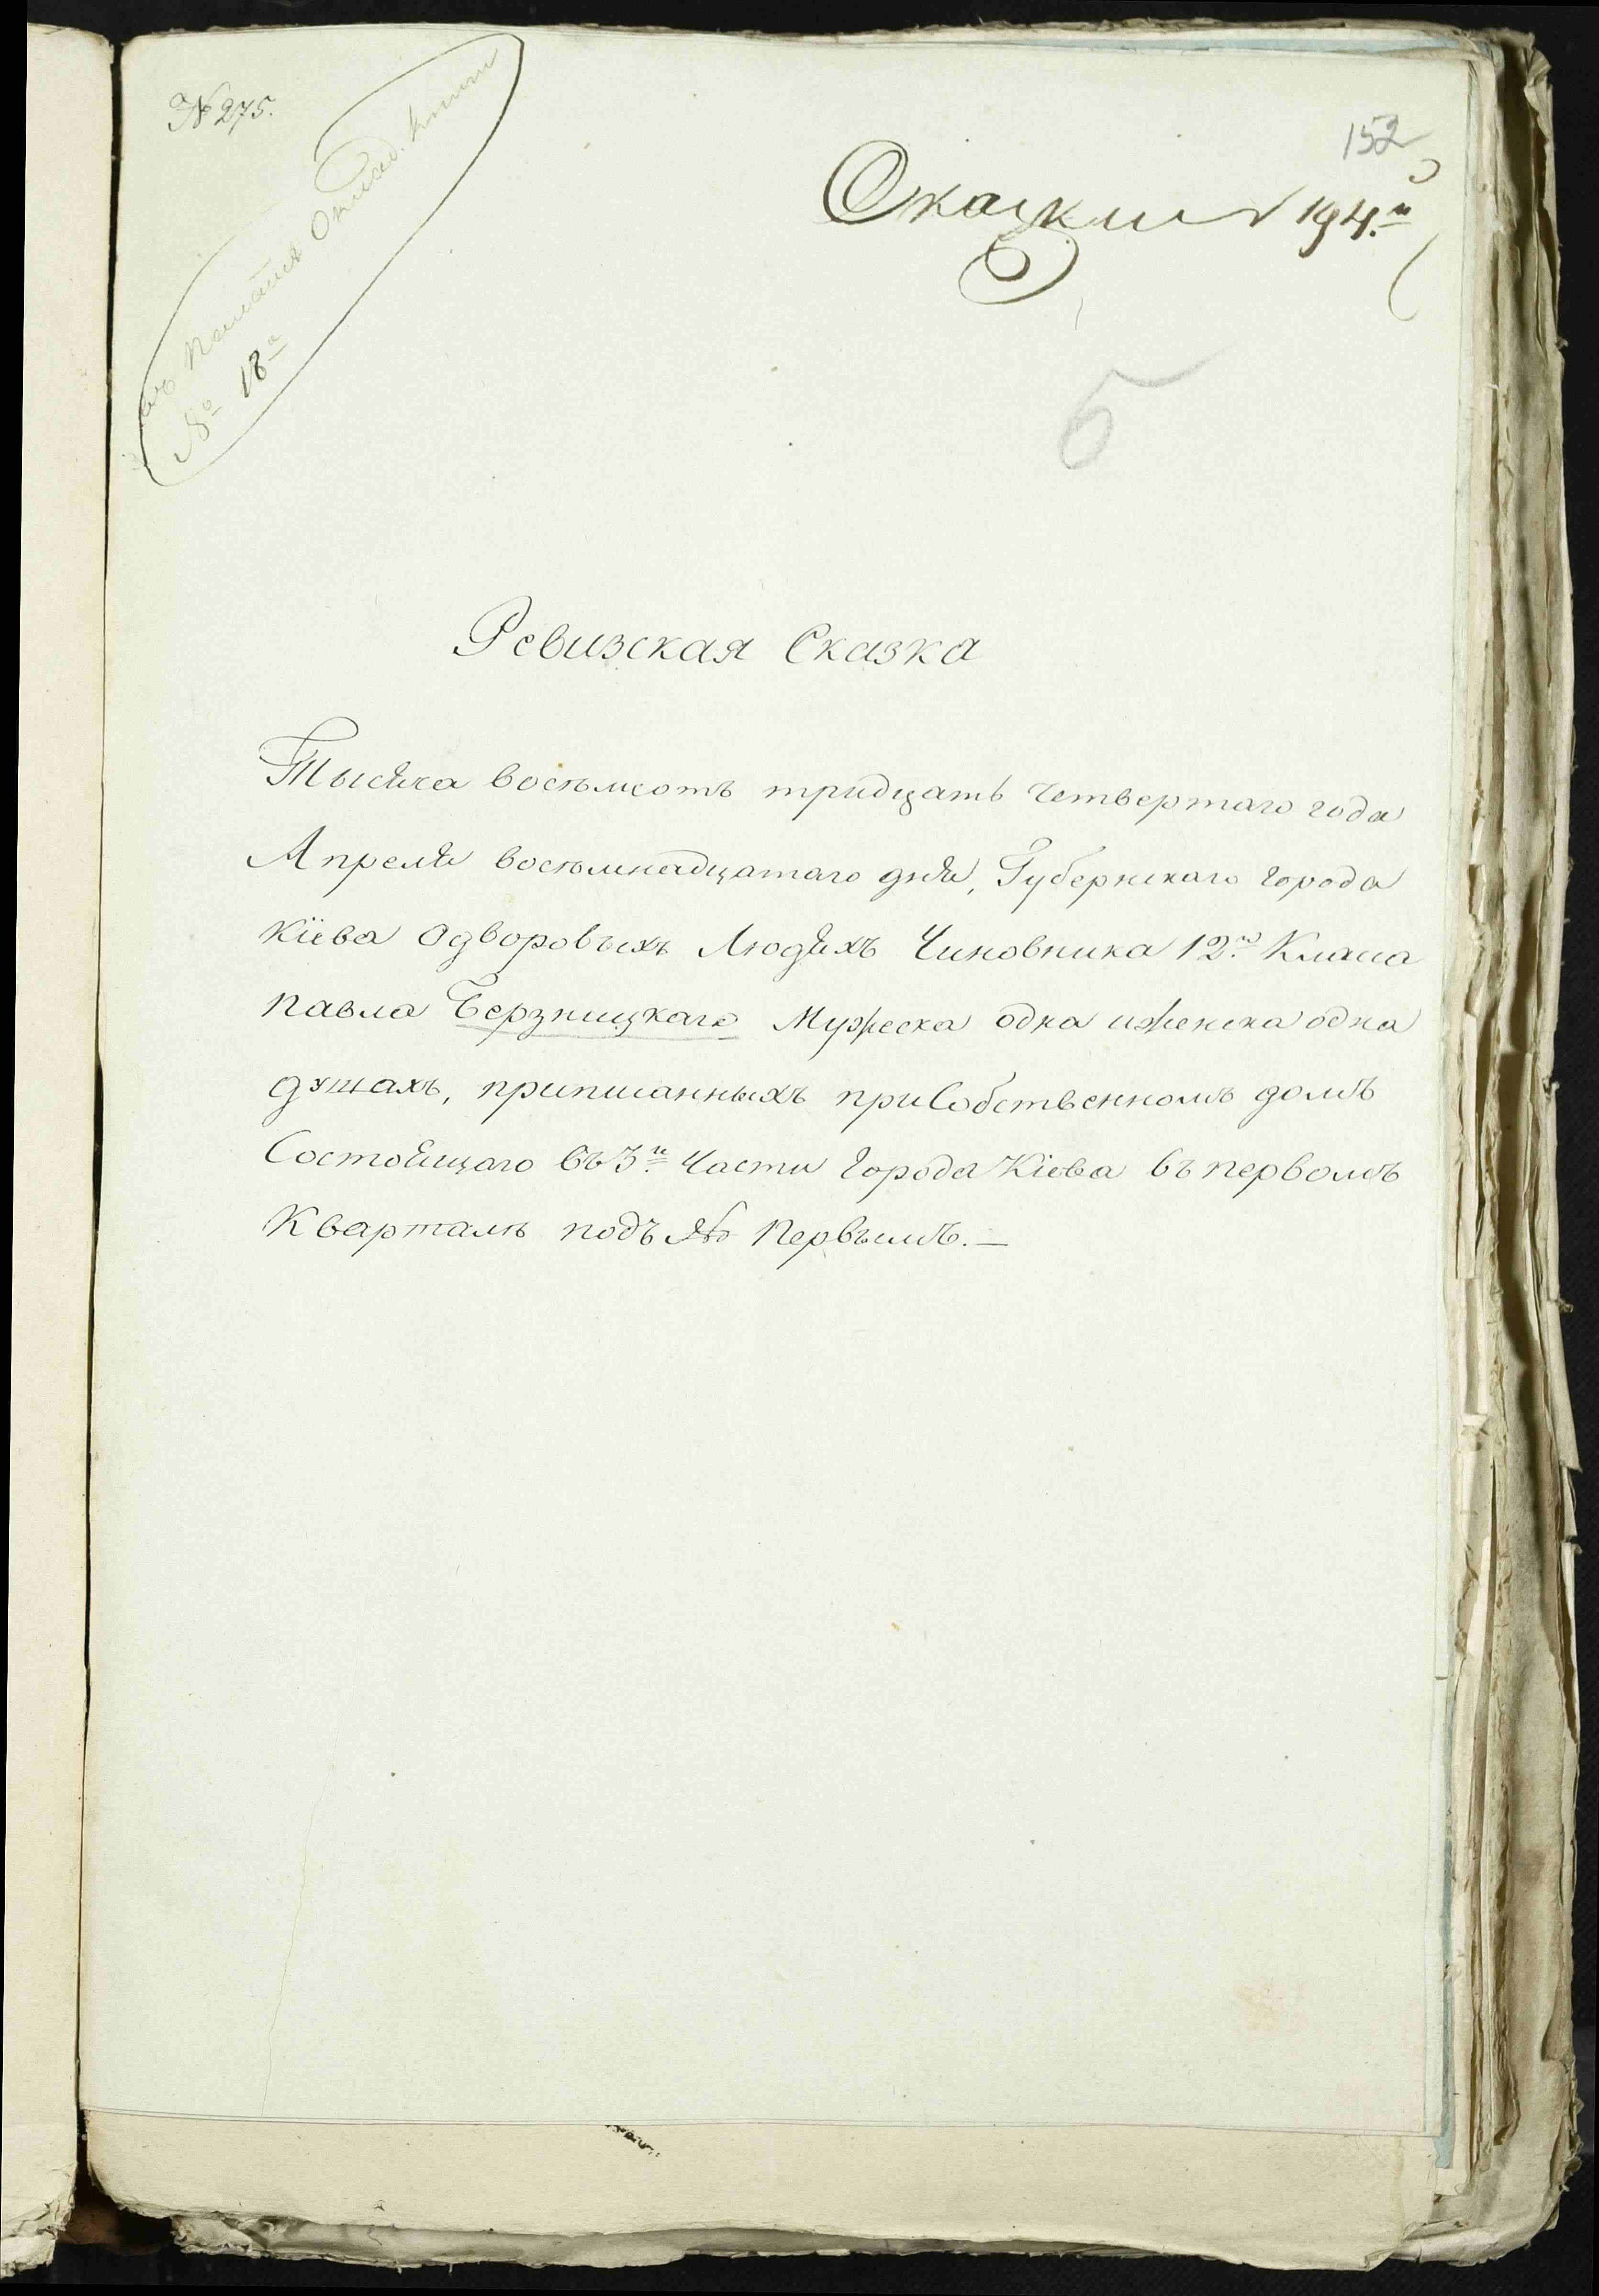 № 275.
152
194.й
№ 18й
Б
Ревизская Сказка
Тысяча восемьсотъ тридцать Четвертаго года
Апреля восемьнадцатаго дня, Губернскаго города
Кіева Одворовыхъ Людяхъ Чиновника 12го Класса
Павла Берзницкаго Мужеска одна иженска одна
душахъ, приписанныхъ приСобственномъ домѣ
Состоящаго въ 3й Части Города Кіева въ первомъ
Кварталѣ подъ № Первымъ.—